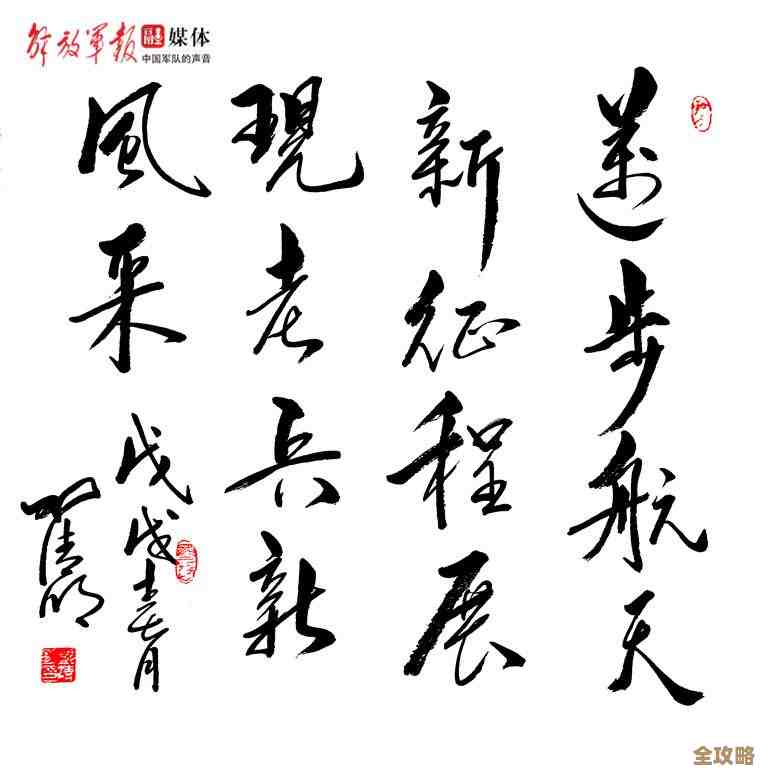 解放軍報 融媒体
中国军队的声音
邁步航天
新征程展
現老兵新
風采
戊戌
全攻略